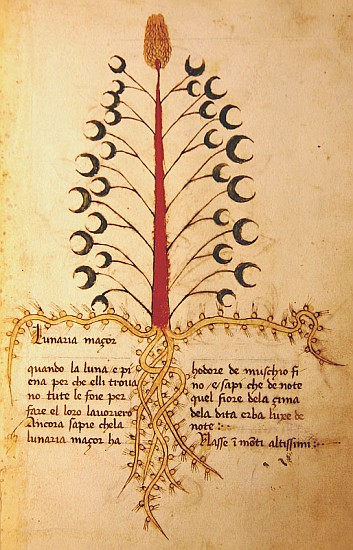 Lunaria maçor
quando la luna e pi
ena per che elli troua
no tute le foie per
fare el lozo lauoriero
Ancora sapie che la
lunaria maçor ha
hodore de muschio fi
no e sapi che de note
quel fiore dela çima
dela dita erba luxe de
note :
Nasse i monti altissimi :